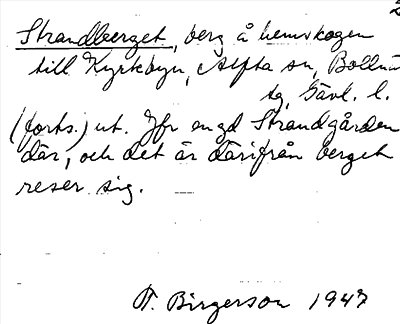 2
Strandberget, berg å hemskogen
till Kyrkbyn, Alfta sn, Bollnäs
tg, Gävl. l.
(forts.) ut. Jfr en gd Strandgården
där, och det är därifrån berget
reser sig.
T. Birgerson 1947